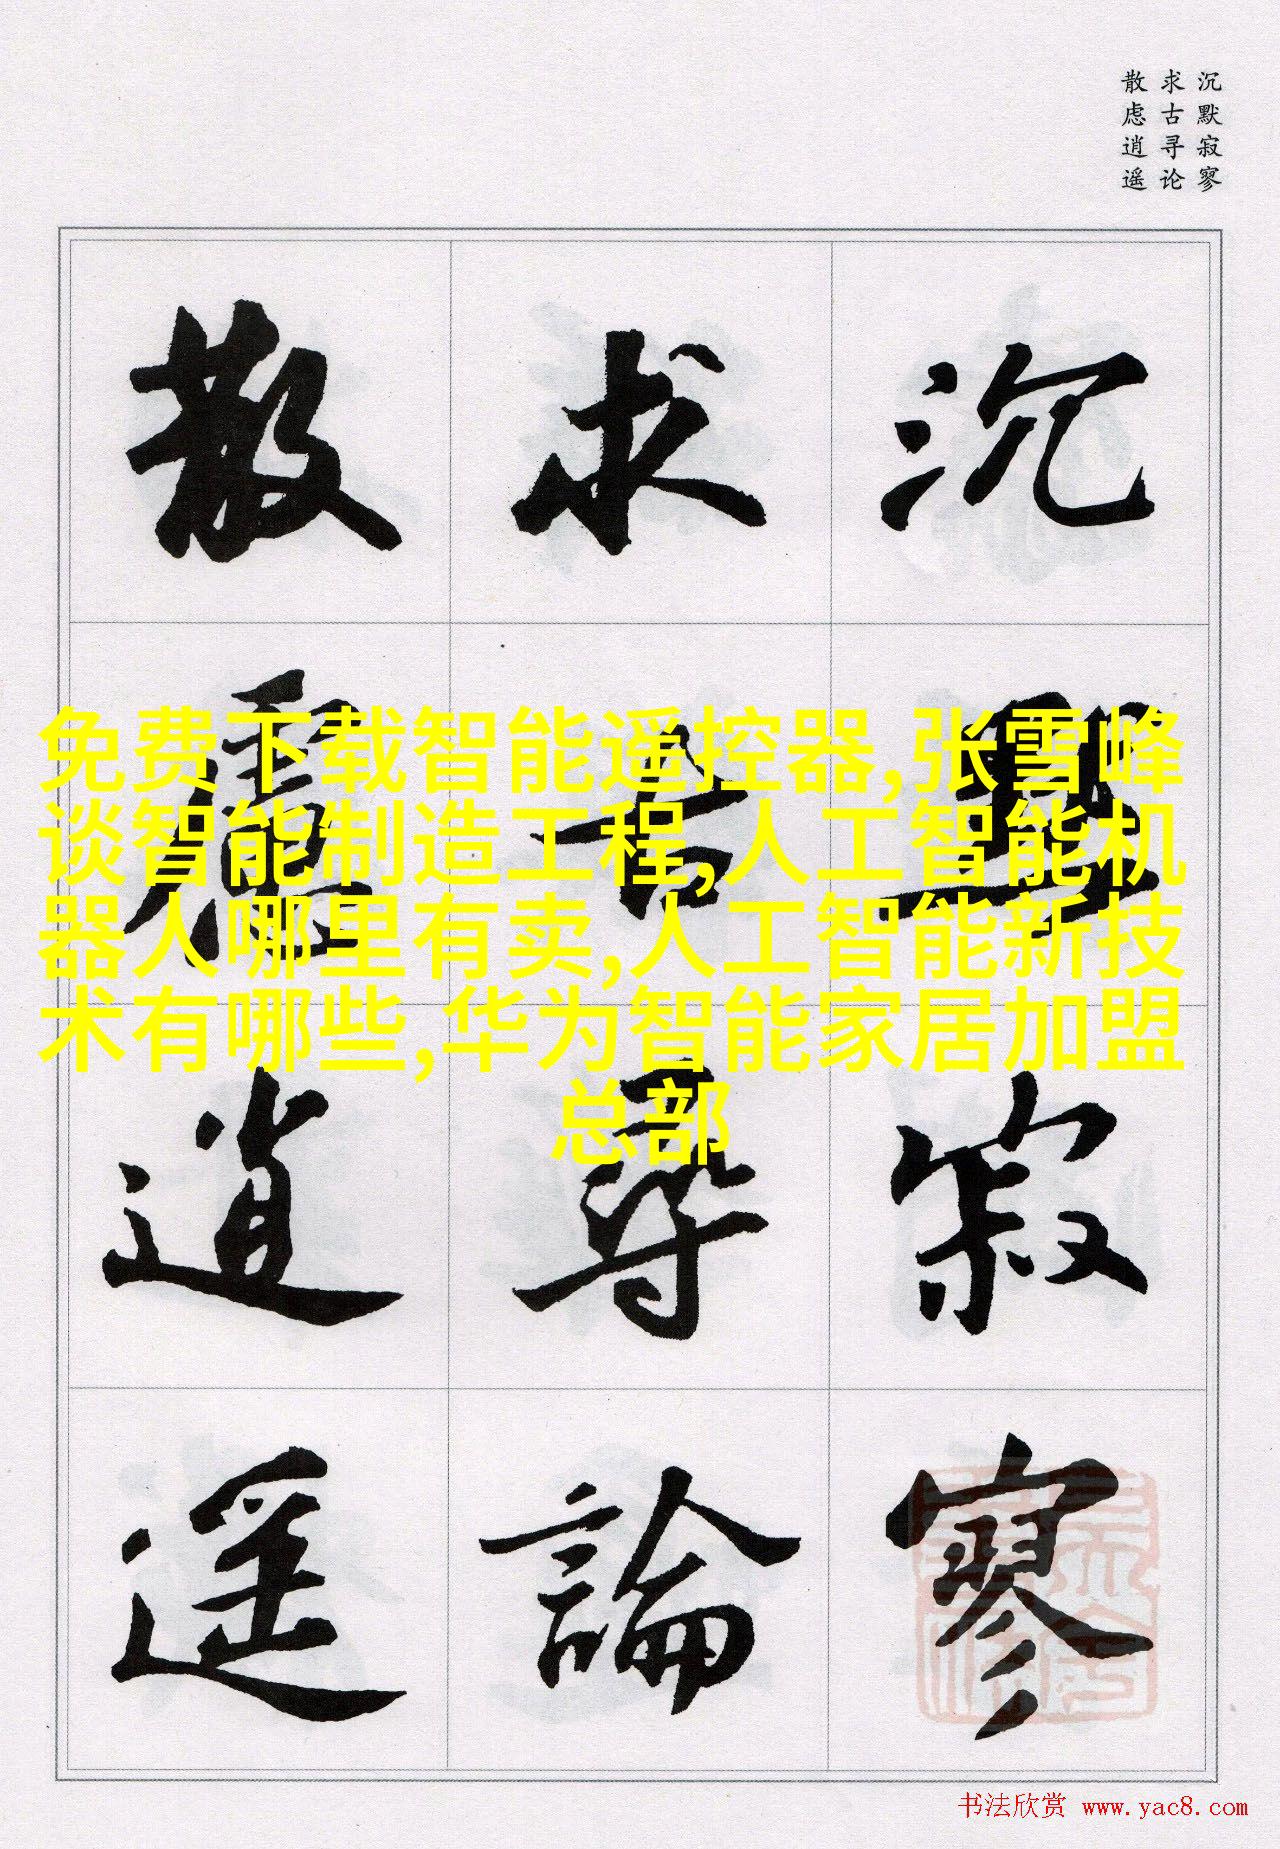 沉默寂寥
求古寻论
散虑逍遥
沉默寂寥
求古尋論
散慮逍遥
免费下载智能遥控器,张雪峰
谈智能制造工程,人工智能机
器人哪里有卖,人工智能新技
术有哪些,华为智能家居加盟
总部
书法欣赏 www.yac8.com